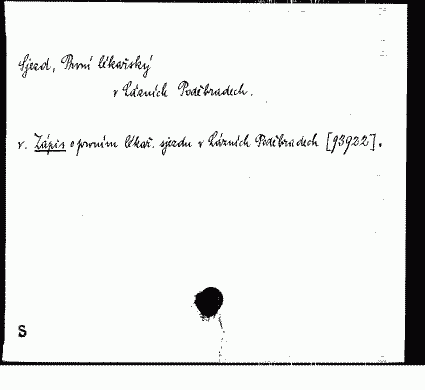 Sjezd, První lékařský
v Lázních Poděbradech.
v. Zápis o prvním lékař. sjezdu v Lázních Poděbradech [93922].
S